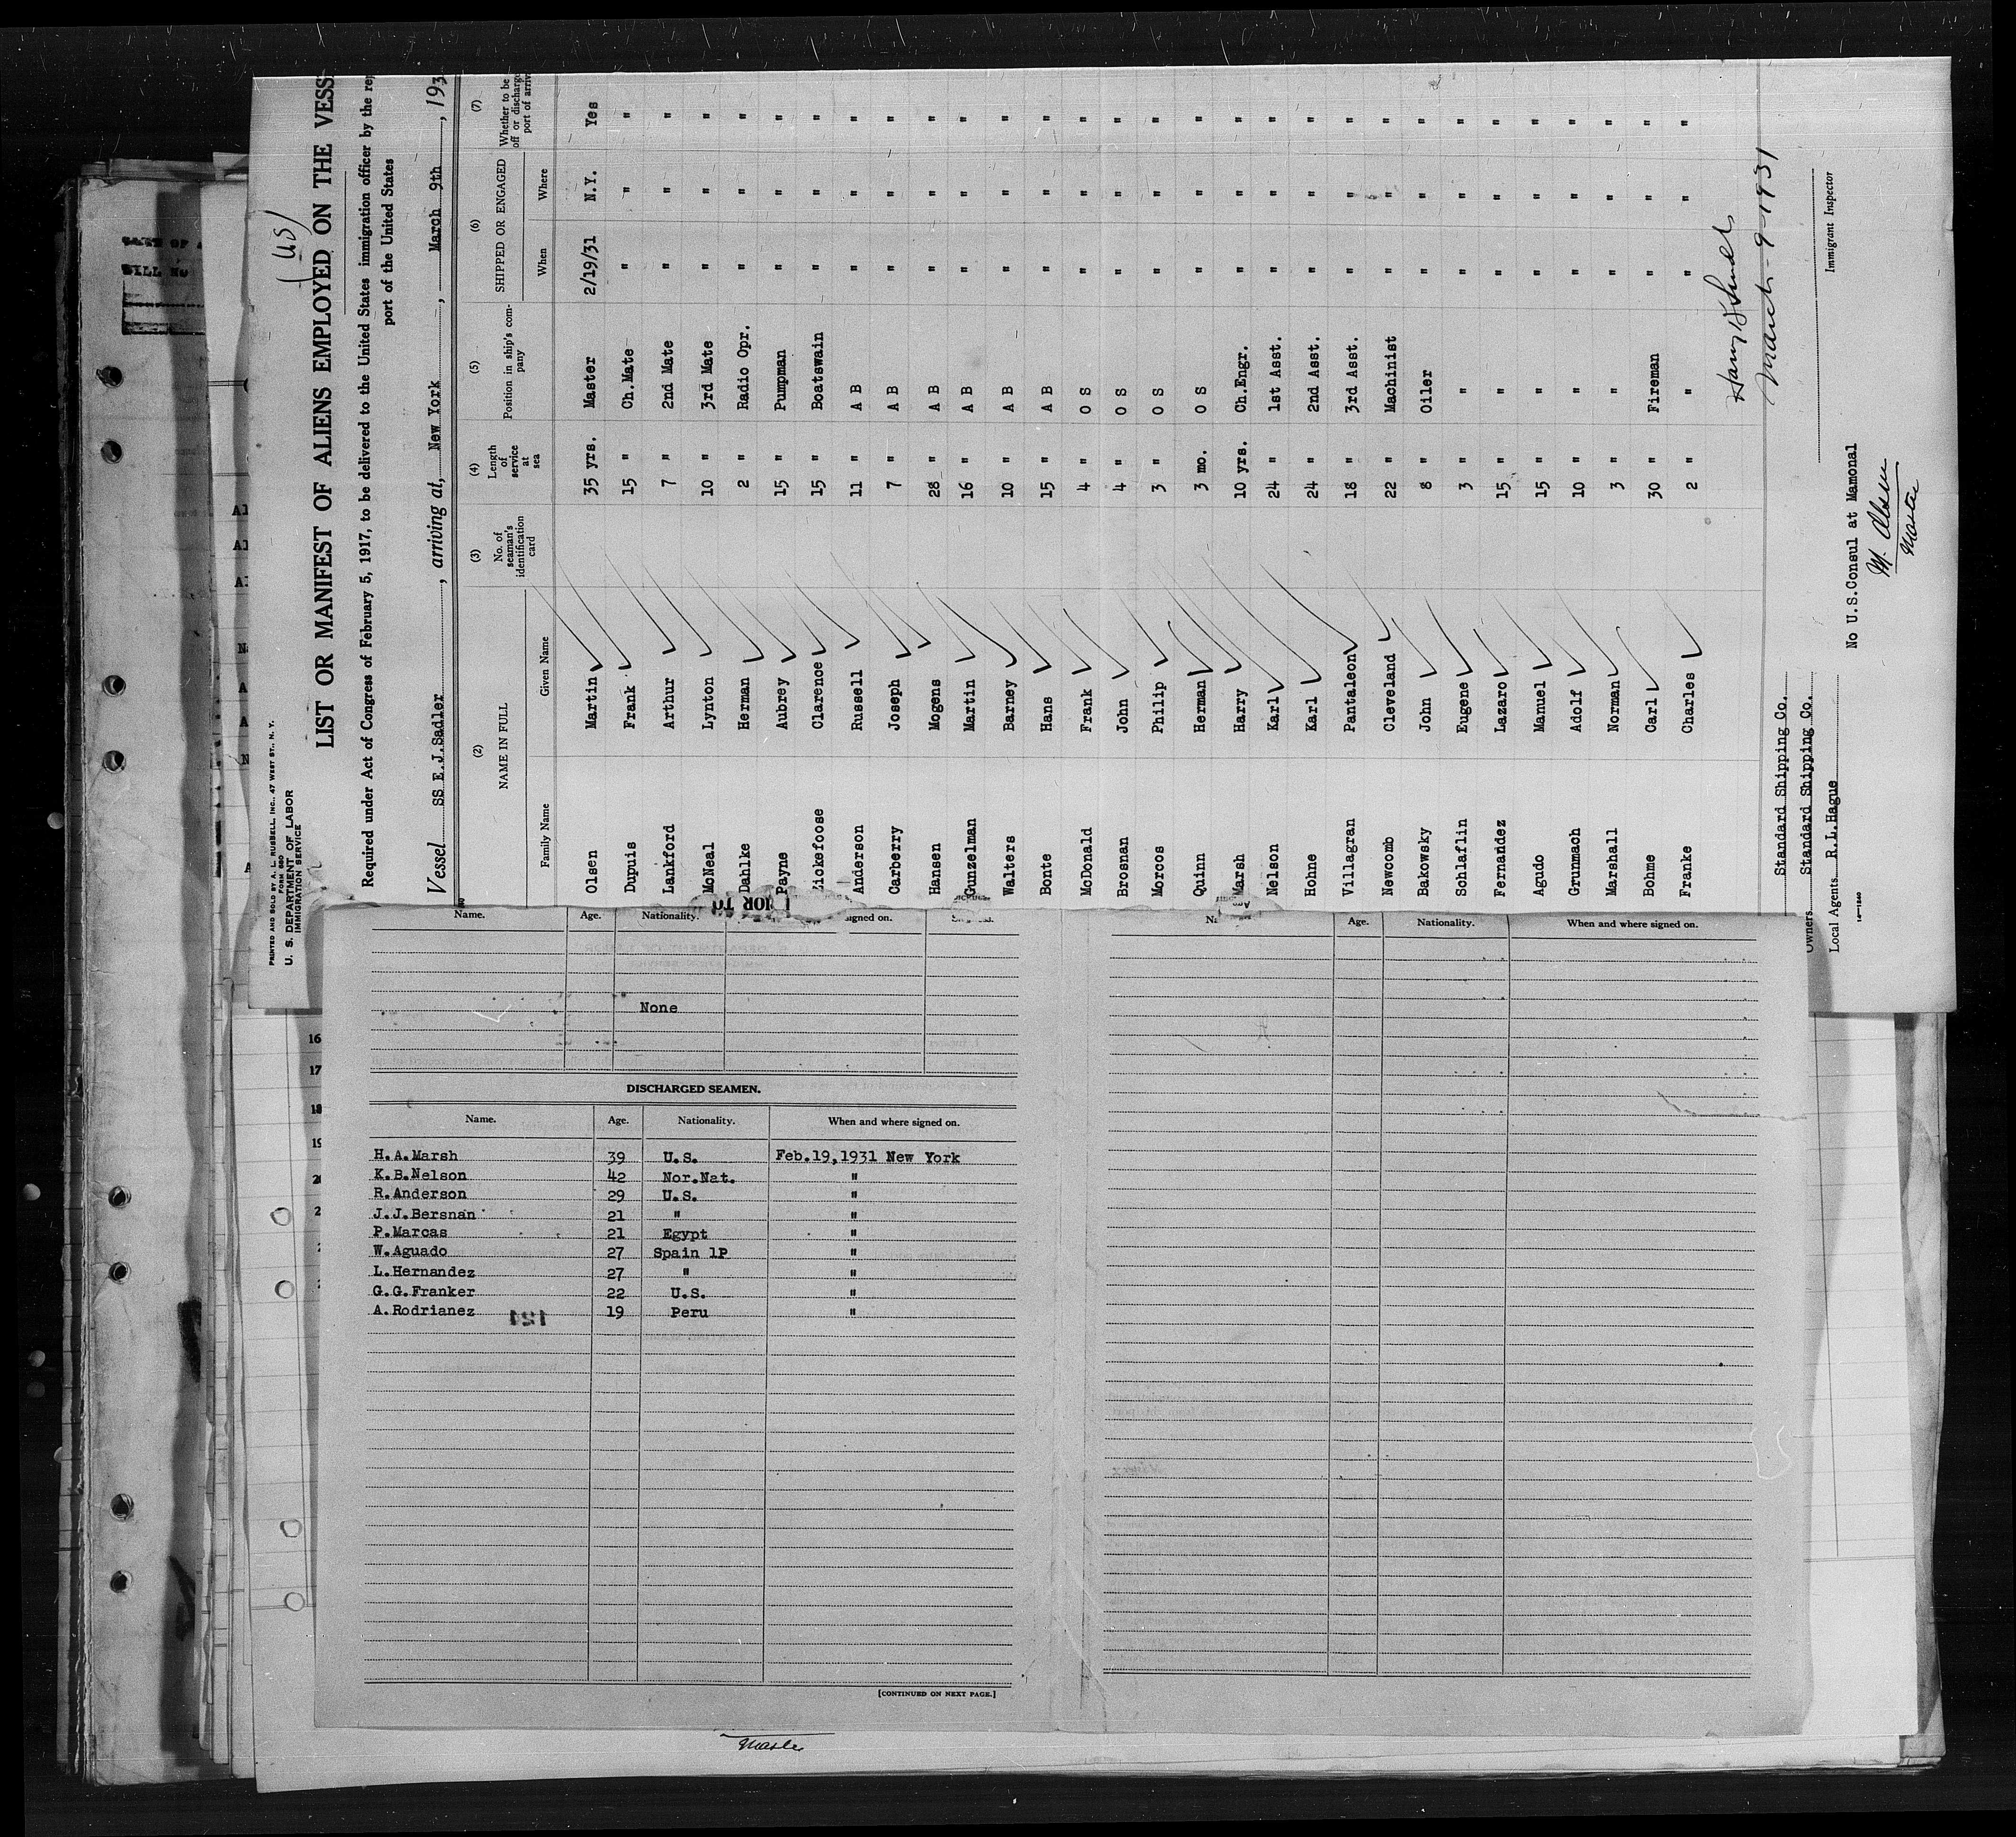 (US)
PRINTED AND SOLD BY A. L. RUSSELL, INC., 47 WEST ST., N. Y.
FORM 680
U. S. DEPARTMENT OF LABOR
IMMIGRATION SERVICE
LIST OR MANIFEST OF ALIENS EMPLOYED ON THE VESS
Required under Act of Congress of February 5, 1917, to be delivered to the United States immigration officer by the rep
port of the United States
Vessel SS E.J.Sadler, arriving at, New York, March 9th, 193
(2) (3) (4) (5) (6) (7)
NAME IN FULL No. of seaman's identification card Length of service at sea Position in ship's company SHIPPED OR ENGAGED Whether to be off or discharge port of arriv
Family Name Given Name When Where
Olsen Martin 35 yrs. Master 2/19/31 N.Y. Yes
Dupuis Frank 15 " Ch.Mate " " "
Lankford Arthur 7 " 2nd Mate " " "
McNeal Lynton 10 " 3rd Mate " " "
Dahlke Herman 2 " Radio Opr. " " "
Payne Aubrey 15 " Pumpman " " "
Zickefoose Clarence 15 " Boatswain " " "
Anderson Russell 11 " A B " " "
Carberry Joseph 7 " A B " " "
Hansen Mogens 28 " A B " " "
Gunzelman Martin 16 " A B " " "
Walters Barney 10 " A B " " "
Bonte Hans 15 " A B " " "
McDonald Frank 4 " O S " " "
Brosnan John 4 " O S " " "
Morcos Philip 3 " O S " " "
Quinn Herman 3 mo. O S " " "
Marsh Harry 10 yrs. Ch.Engr. " " "
Nelson Karl 24 " 1st Asst. " " "
Hohne Karl 24 " 2nd Asst. " " "
Villagran Pantaleon 18 " 3rd Asst. " " "
Newcomb Cleveland 22 " Machinist " " "
Bakowsky John 8 " Oiler " " "
Schlaflin Eugene 3 " " " " "
Fernandez Lazaro 15 " " " " "
Agudo Manuel 15 " " " " "
Grunmach Adolf 10 " " " " "
Marshall Norman 3 " " " " "
Bohme Carl 30 " Fireman " " "
Franke Charles 2 " " " " "
March-9-1931
Immigrant Inspector
Standard Shipping Co.
Owners Standard Shipping Co.
Local Agents R.L.Hague
No U.S.Consul at Mamonal
M. Olsen
Master
Name. Age. Nationality. signed on.
None
DISCHARGED SEAMEN.
Name. Age. Nationality. When and where signed on.
H.A.Marsh 39 U.S. Feb.19,1931 New York
K.B.Nelson 42 Nor.Nat. "
R.Anderson 29 U.S. "
J.J.Bersnan 21 " "
P.Marcas 21 Egypt "
W.Aguado 27 Spain 1P "
L.Hernandez 27 " "
G.G.Franker 22 U.S. "
A.Rodrianez 19 Peru "
121
[CONTINUED ON NEXT PAGE.]
Age. Nationality. When and where signed on.
16
17
18
19
Master